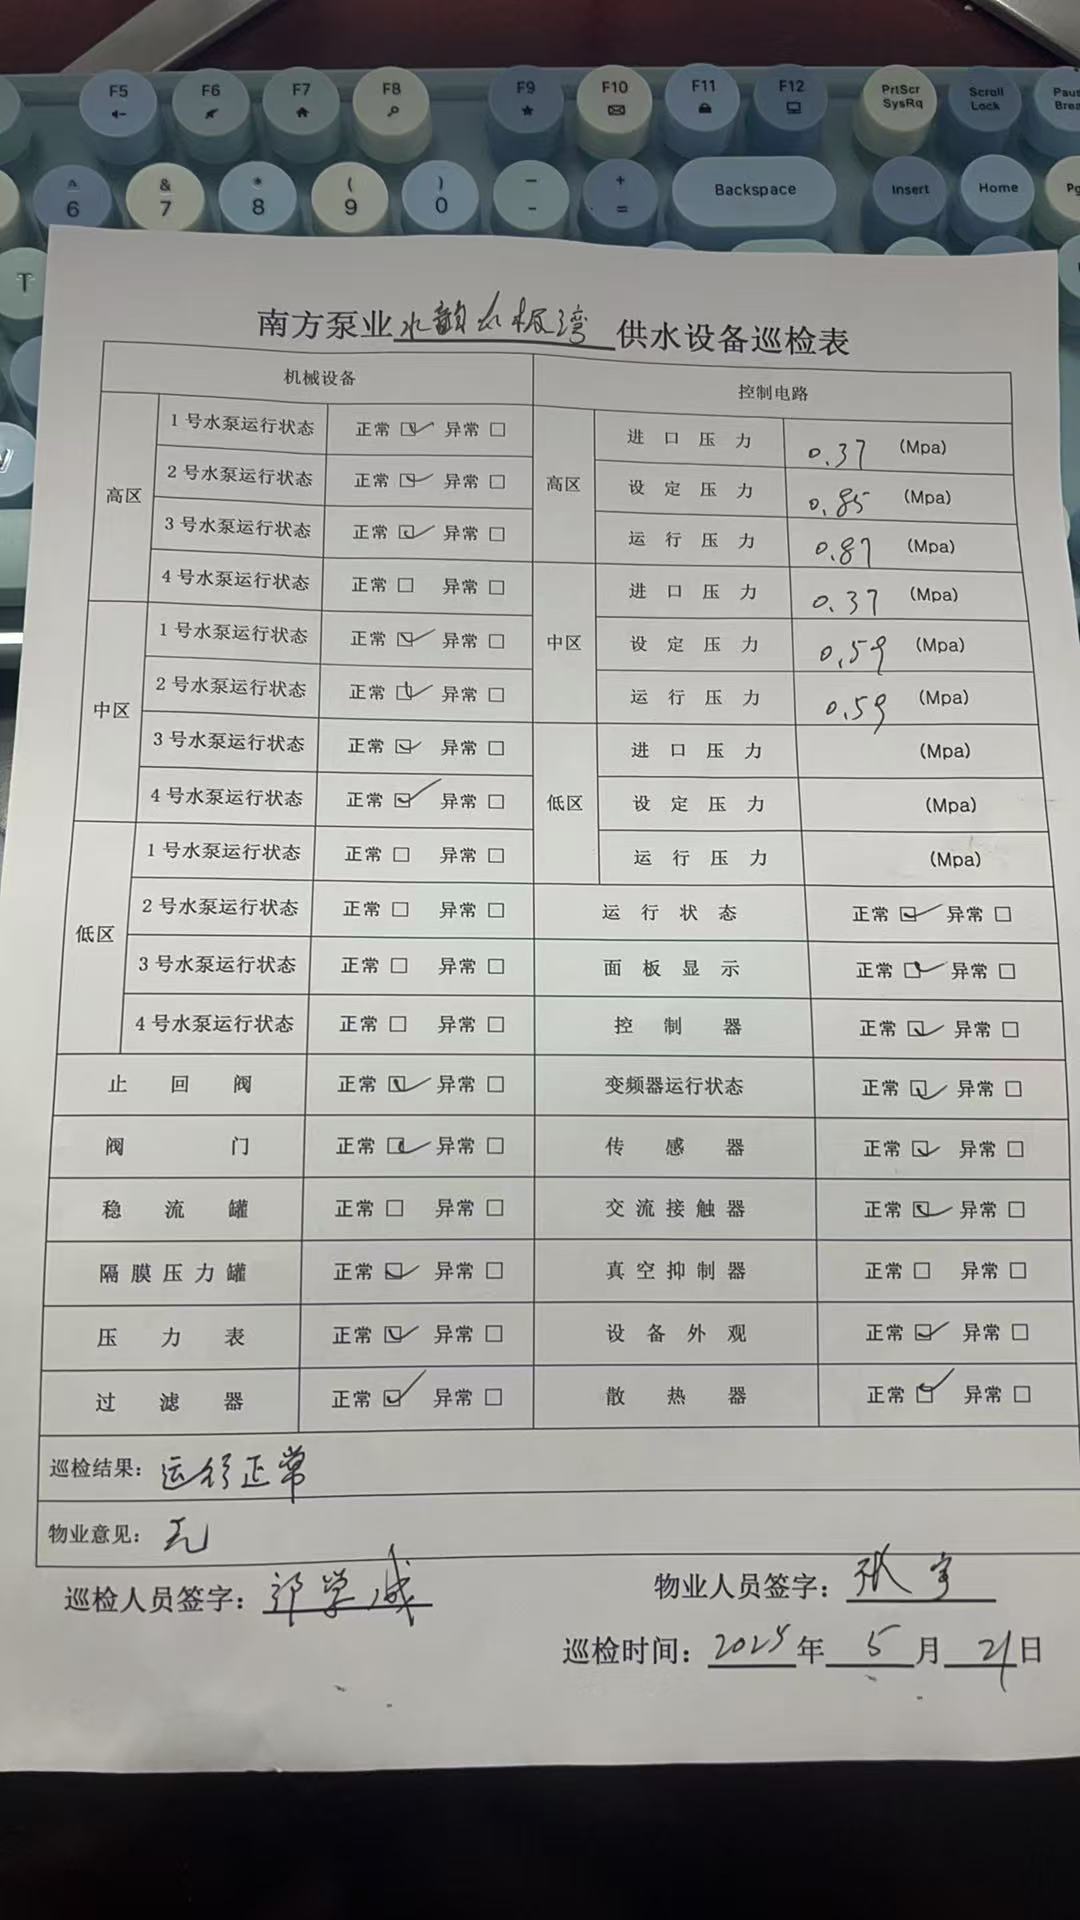 F5 F6 F7 F8 F9 F10 F11 F12 PrtScr SysRq Scroll Lock
^ 6 & 7 * 8 ( 9 ) 0 - - + = Backspace Insert Home
T
南方泵业水韵 板湾供水设备巡检表
机械设备 控制电路
高区 1号水泵运行状态 正常☑ 异常☐
2号水泵运行状态 正常☑ 异常☐
3号水泵运行状态 正常☑ 异常☐
4号水泵运行状态 正常☐ 异常☐
中区 1号水泵运行状态 正常☑ 异常☐
2号水泵运行状态 正常☑ 异常☐
3号水泵运行状态 正常☑ 异常☐
4号水泵运行状态 正常☑ 异常☐
低区 1号水泵运行状态 正常☐ 异常☐
2号水泵运行状态 正常☐ 异常☐
3号水泵运行状态 正常☐ 异常☐
4号水泵运行状态 正常☐ 异常☐
止回阀 正常☑ 异常☐
阀门 正常☑ 异常☐
稳流罐 正常☐ 异常☐
隔膜压力罐 正常☑ 异常☐
压力表 正常☑ 异常☐
过滤器 正常☑ 异常☐
高区 进口压力 0.37 (Mpa)
设定压力 0.85 (Mpa)
运行压力 0.87 (Mpa)
中区 进口压力 0.37 (Mpa)
设定压力 0.59 (Mpa)
运行压力 0.59 (Mpa)
低区 进口压力 (Mpa)
设定压力 (Mpa)
运行压力 (Mpa)
运行状态 正常☑ 异常☐
面板显示 正常☑ 异常☐
控制器 正常☑ 异常☐
变频器运行状态 正常☑ 异常☐
传感器 正常☑ 异常☐
交流接触器 正常☑ 异常☐
真空抑制器 正常☐ 异常☐
设备外观 正常☑ 异常☐
散热器 正常☑ 异常☐
巡检结果：运行正常
物业意见：无
巡检人员签字： 学成 物业人员签字：张宇
巡检时间：2025年5月21日